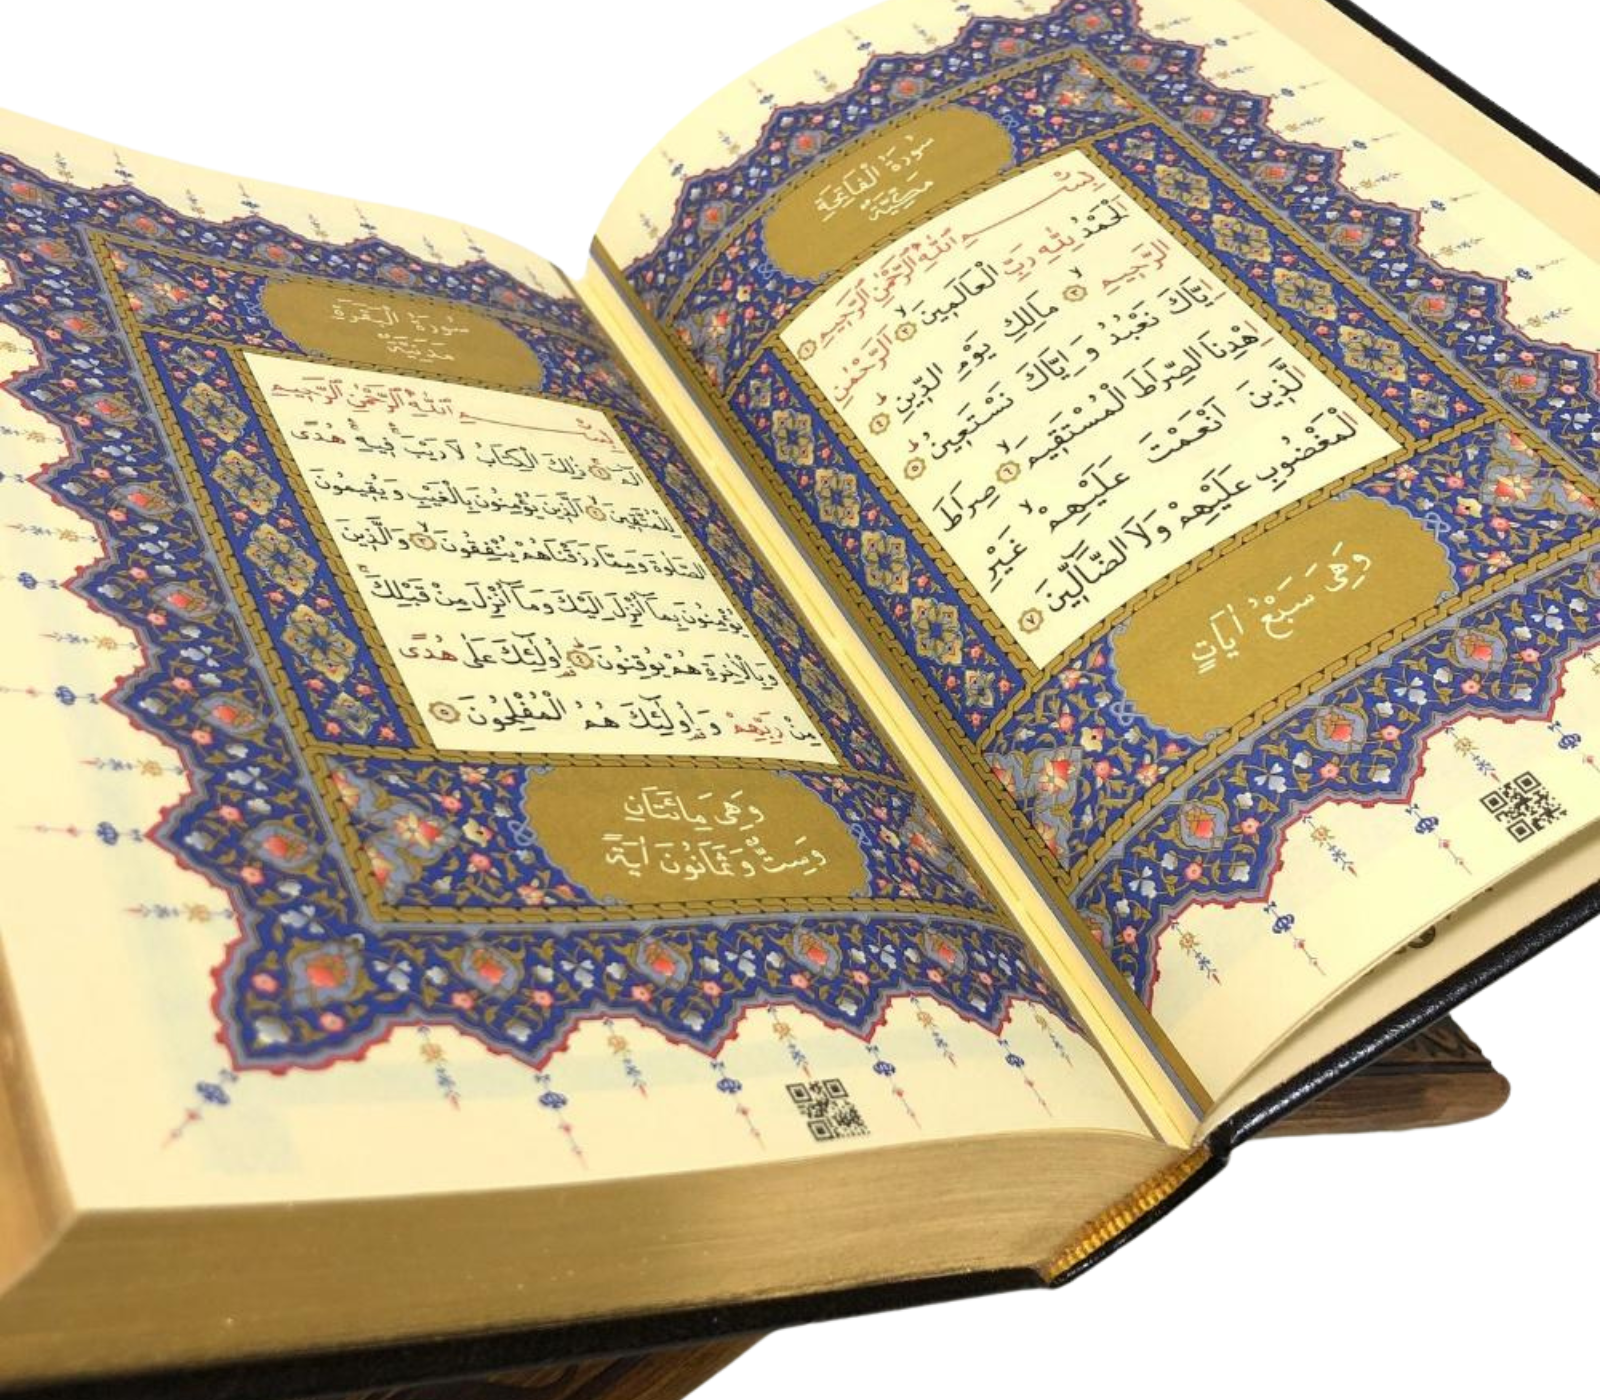 سُورَةُ الْفَاتِحَةِ
مَكِّيَّةٌ
بِسْــــــمِ اللّٰهِ الرَّحْمٰنِ الرَّحِيمِ ﴿١﴾
اَلْحَمْدُ لِلّٰهِ رَبِّ الْعَالَمِينَۙ ﴿٢﴾ اَلرَّحْمٰنِ
الرَّحِيمِۙ ﴿٣﴾ مَالِكِ يَوْمِ الدِّينِۜ ﴿٤﴾
اِيَّاكَ نَعْبُدُ وَاِيَّاكَ نَسْتَعِينُۜ ﴿٥﴾
اِهْدِنَا الصِّرَاطَ الْمُسْتَقِيمَۙ ﴿٦﴾ صِرَاطَ
الَّذِينَ اَنْعَمْتَ عَلَيْهِمْۙ غَيْرِ
الْمَغْضُوبِ عَلَيْهِمْ وَلَا الضَّٓالِّينَ ﴿٧﴾
وَهِىَ سَبْعُ اٰيَاتٍ
سُورَةُ الْبَقَرَةِ
مَدَنِيَّةٌ
بِسْــــــمِ اللّٰهِ الرَّحْمٰنِ الرَّحِيمِ
الٓمٓۚ ﴿١﴾ ذٰلِكَ الْكِتَابُ لَا رَيْبَۚ فِيهِۚ هُدًى
لِلْمُتَّقِينَۙ ﴿٢﴾ اَلَّذِينَ يُؤْمِنُونَ بِالْغَيْبِ وَيُقِيمُونَ
الصَّلٰوةَ وَمِمَّا رَزَقْنَاهُمْ يُنْفِقُونَۙ ﴿٣﴾ وَالَّذِينَ
يُؤْمِنُونَ بِمَٓا اُنْزِلَ اِلَيْكَ وَمَٓا اُنْزِلَ مِنْ قَبْلِكَۚ
وَبِالْاٰخِرَةِ هُمْ يُوقِنُونَۜ ﴿٤﴾ اُو۬لٰٓئِكَ عَلٰى هُدًى
مِنْ رَبِّهِمْ وَاُو۬لٰٓئِكَ هُمُ الْمُفْلِحُونَ ﴿٥﴾
وَهِىَ مِائَتَانِ
وَسِتٌّ وَثَمَانُونَ اٰيَةً